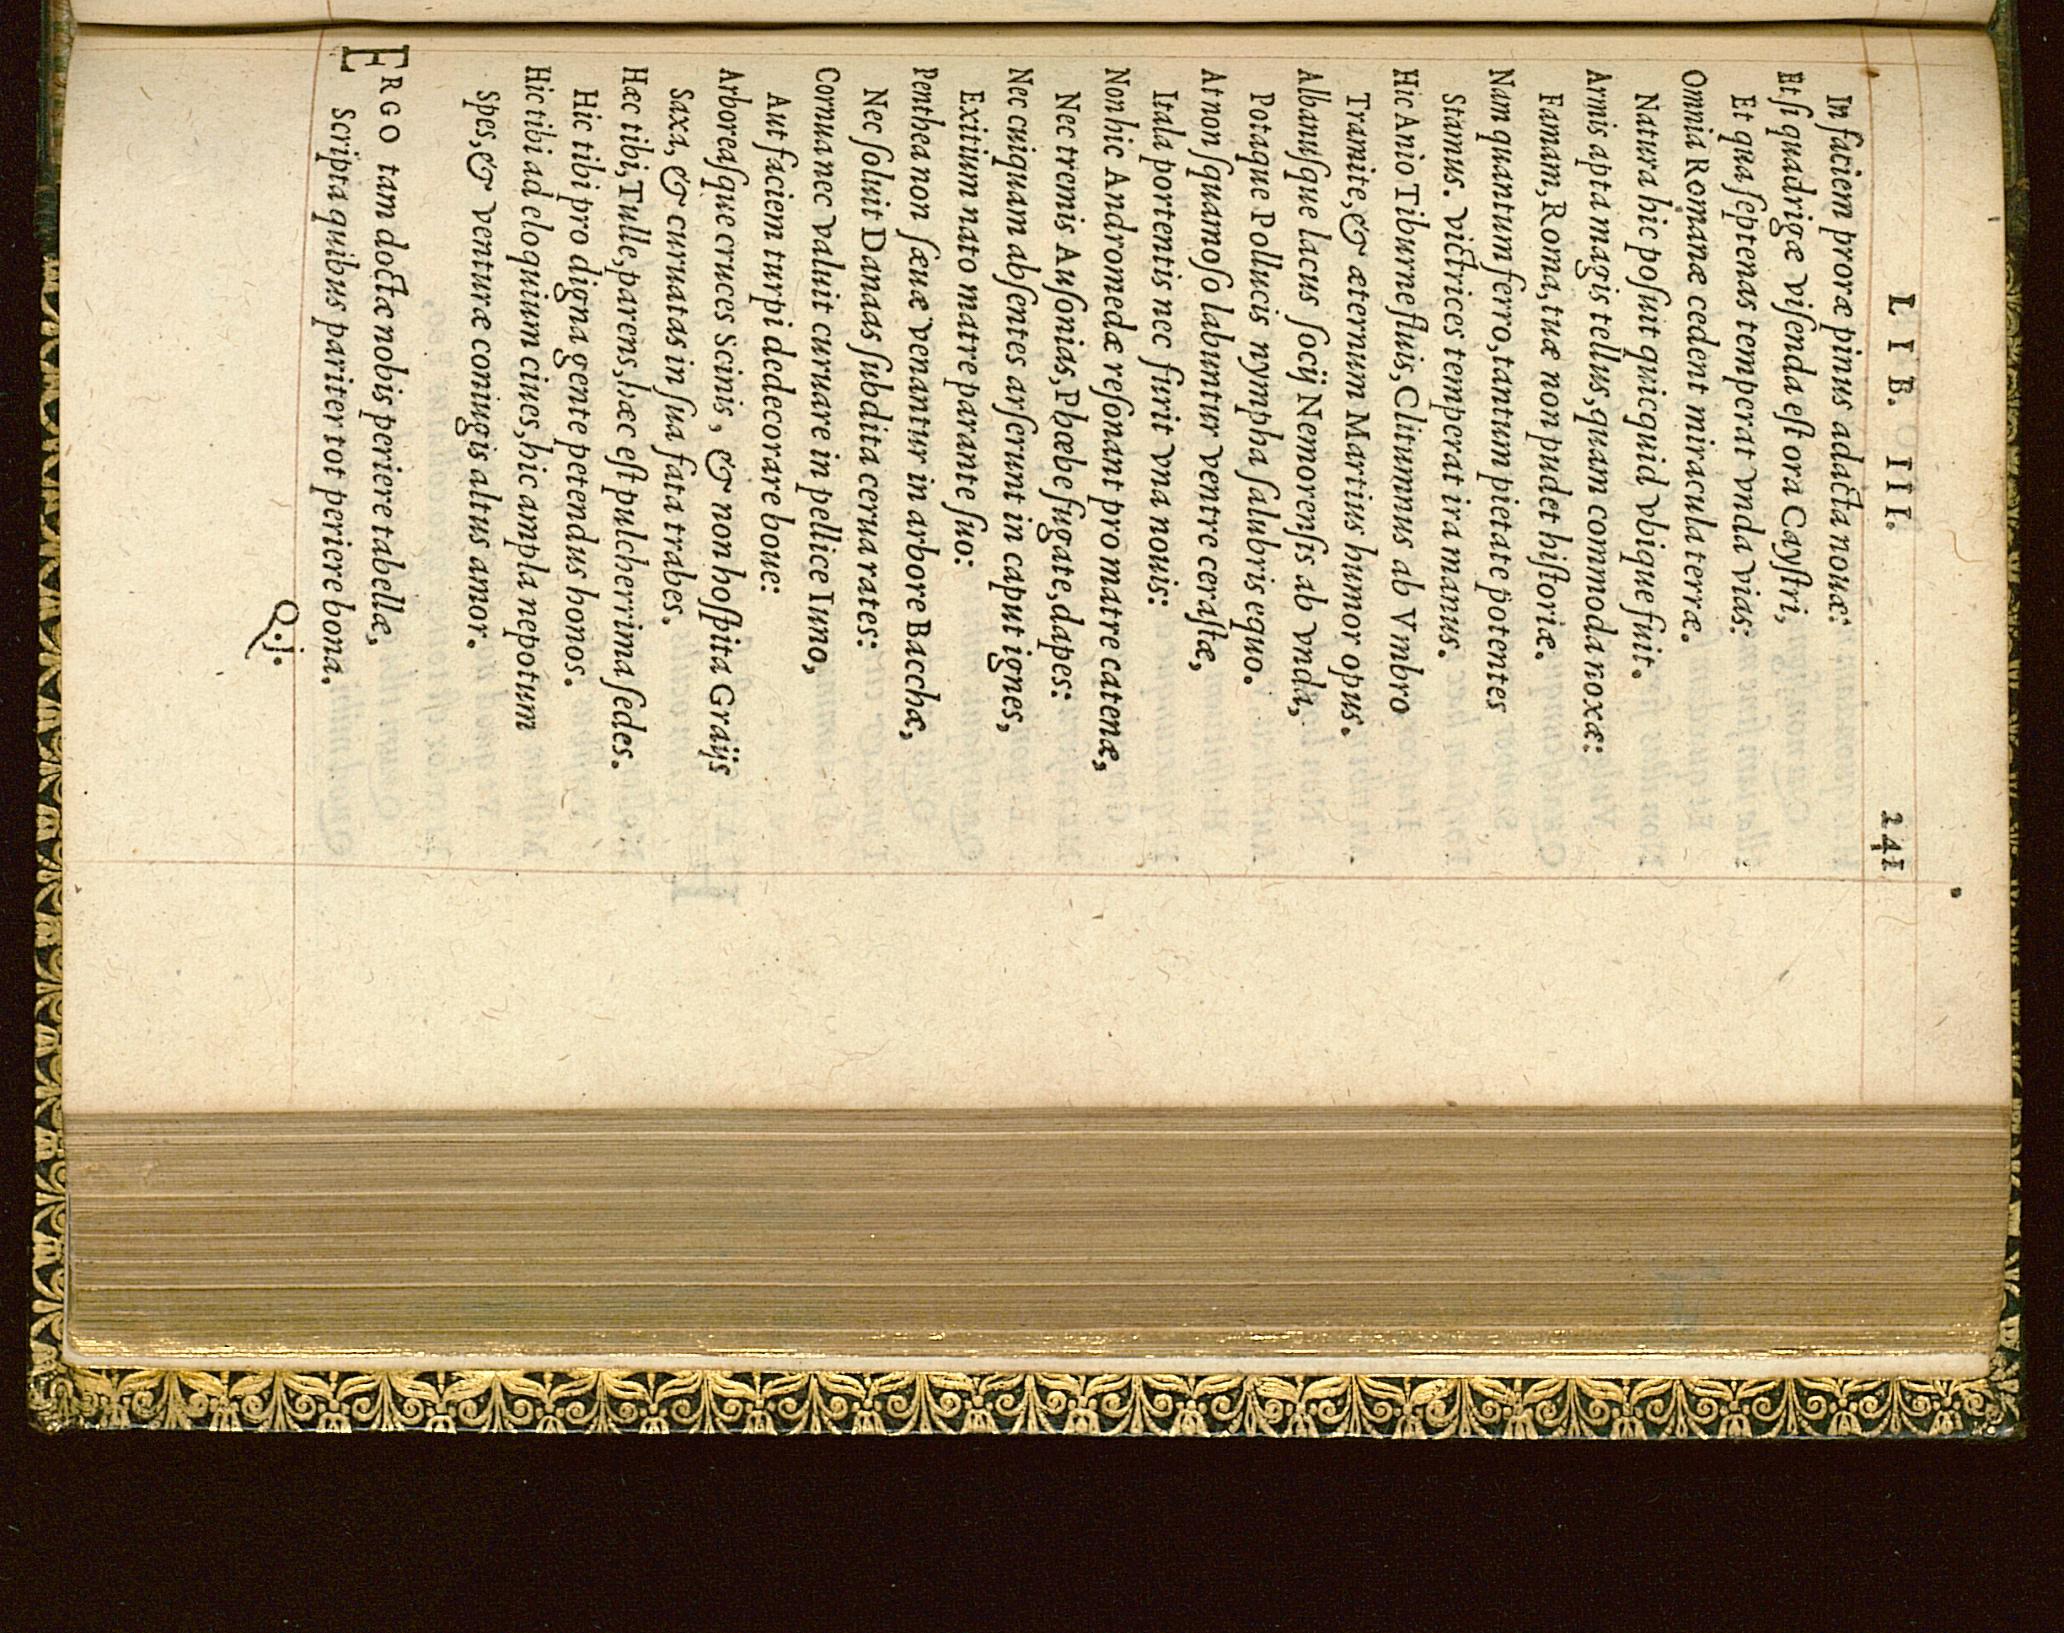 LIB. III. 241
In faciem proræ pinus adacta nouæ:
Et si quadrigæ visenda est ora Caystri,
Et qua septenas temperat vnda vias:
Omnia Romanæ cedent miracula terræ.
Natura hic posuit quicquid vbique fuit.
Armis apta magis tellus, quam commoda noxæ:
Famam, Roma, tuæ non pudet historiæ.
Nam quantum ferro, tantum pietate potentes
Stamus. victrices temperat ira manus.
Hic Anio Tiburne fluis, Clitumnus ab Vmbro
Tramite, & æternum Martius humor opus.
Albanusque lacus socij Nemorensis ab vnda,
Potaque Pollucis nympha salubris equo.
At non squamoso labuntur ventre cerastæ,
Itala portentis nec furit vna nouis:
Non hic Andromedæ resonant pro matre catenæ,
Nec tremis Ausonias, Phœbe fugate, dapes:
Nec cuiquam absentes arserunt in caput ignes,
Exitium nato matre parante suo:
Penthea non sæuæ venantur in arbore Bacchæ,
Nec soluit Danaas subdita cerua rates:
Cornua nec valuit curuare in pellice Iuno,
Aut faciem turpi dedecorare boue:
Arboreasque cruces Scinis, & non hospita Graijs
Saxa, & curuatas in sua fata trabes.
Hæc tibi, Tulle, parens, hæc est pulcherrima sedes.
Hic tibi pro digna gente petendus honos.
Hic tibi ad eloquium ciues, hic ampla nepotum
Spes, & venturæ coniugis altus amor.
ERGO tam doctæ nobis periere tabellæ,
Scripta quibus pariter tot periere bona.
Q.j.